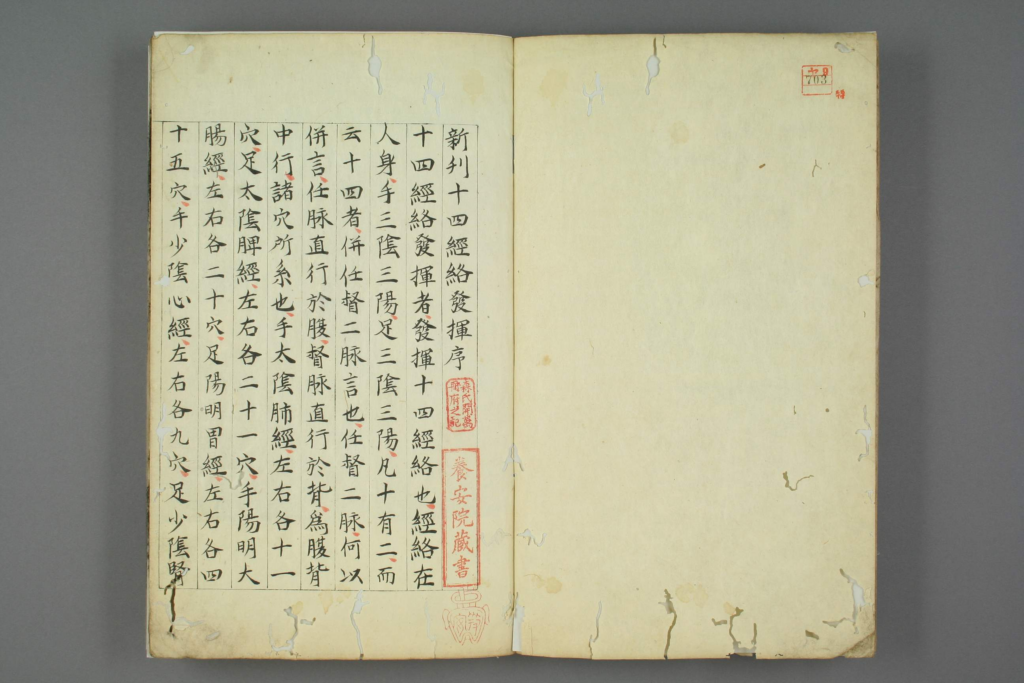 新刋十四經絡發揮序
十四經絡發揮者發揮十四經絡也經絡在
人身手三陰三陽足三陰三陽凡十有二而
云十四者併任督二脉言也任督二脉何以
併言任脉直行於腹督脉直行於背爲腹背
中行諸穴所系也手太陰肺經左右各十一
穴足太陰脾經左右各二十一穴手陽明大
腸經左右各二十穴足陽明胃經左右各四
十五穴手少陰心經左右各九穴足少陰腎
養安院蔵書
森氏開萬
冊府之記
703
特